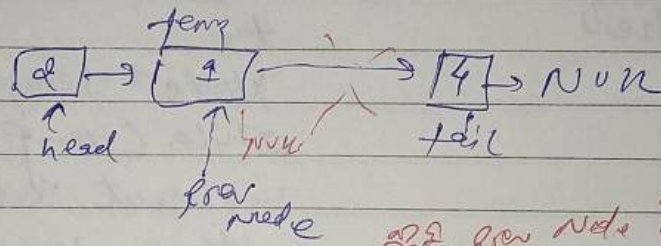 temp
2 → 1 → 4 → NULL
head NULL tail
prev
node
prev Node